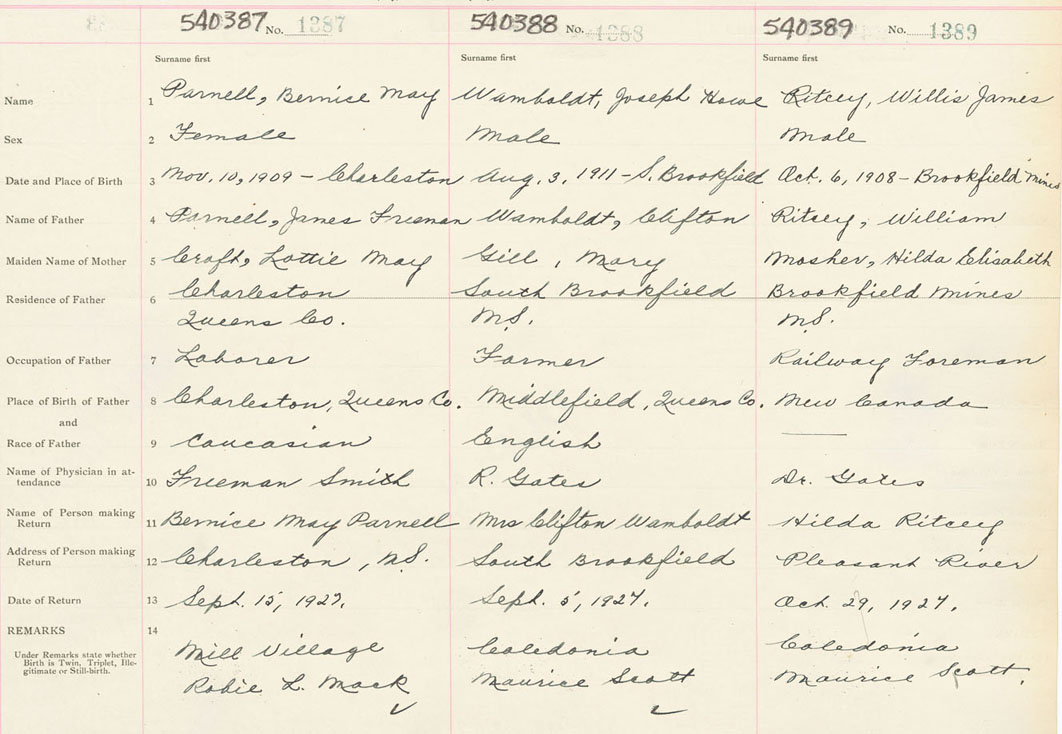 540387 No. 1387 540388 No. 1388 540389 No. 1389
Surname first Surname first Surname first
Name 1 Parnell, Bernice May Wamboldt, Joseph Howe Ritcey, Willis James
Sex 2 Female Male Male
Date and Place of Birth 3 Nov. 10, 1909 - Charleston Aug. 3, 1911 - S. Brookfield Oct. 6, 1908 - Brookfield Mines
Name of Father 4 Parnell, James Freeman Wamboldt, Clifton Ritcey, William
Maiden Name of Mother 5 Croft, Lottie May Gill, Mary Mosher, Hilda Elisabeth
Residence of Father 6 Charleston South Brookfield Brookfield Mines
Queens Co. N.S. N.S.
Occupation of Father 7 Laborer Farmer Railway Foreman
Place of Birth of Father 8 Charleston, Queens Co. Middlefield, Queens Co. New Canada
and
Race of Father 9 Caucasian English
Name of Physician in at-
tendance 10 Freeman Smith R. Gates Dr. Gates
Name of Person making
Return 11 Bernice May Parnell Mrs Clifton Wamboldt Hilda Ritcey
Address of Person making
Return 12 Charleston, N.S. South Brookfield Pleasant River
Date of Return 13 Sept. 15, 1927. Sept. 5, 1927. Oct. 29, 1927.
REMARKS 14
Under Remarks state whether
Birth is Twin, Triplet, Ille-
gitimate or Still-birth.
Mill Village Caledonia Caledonia
Robie L. Mack Maurice Scott Maurice Scott.